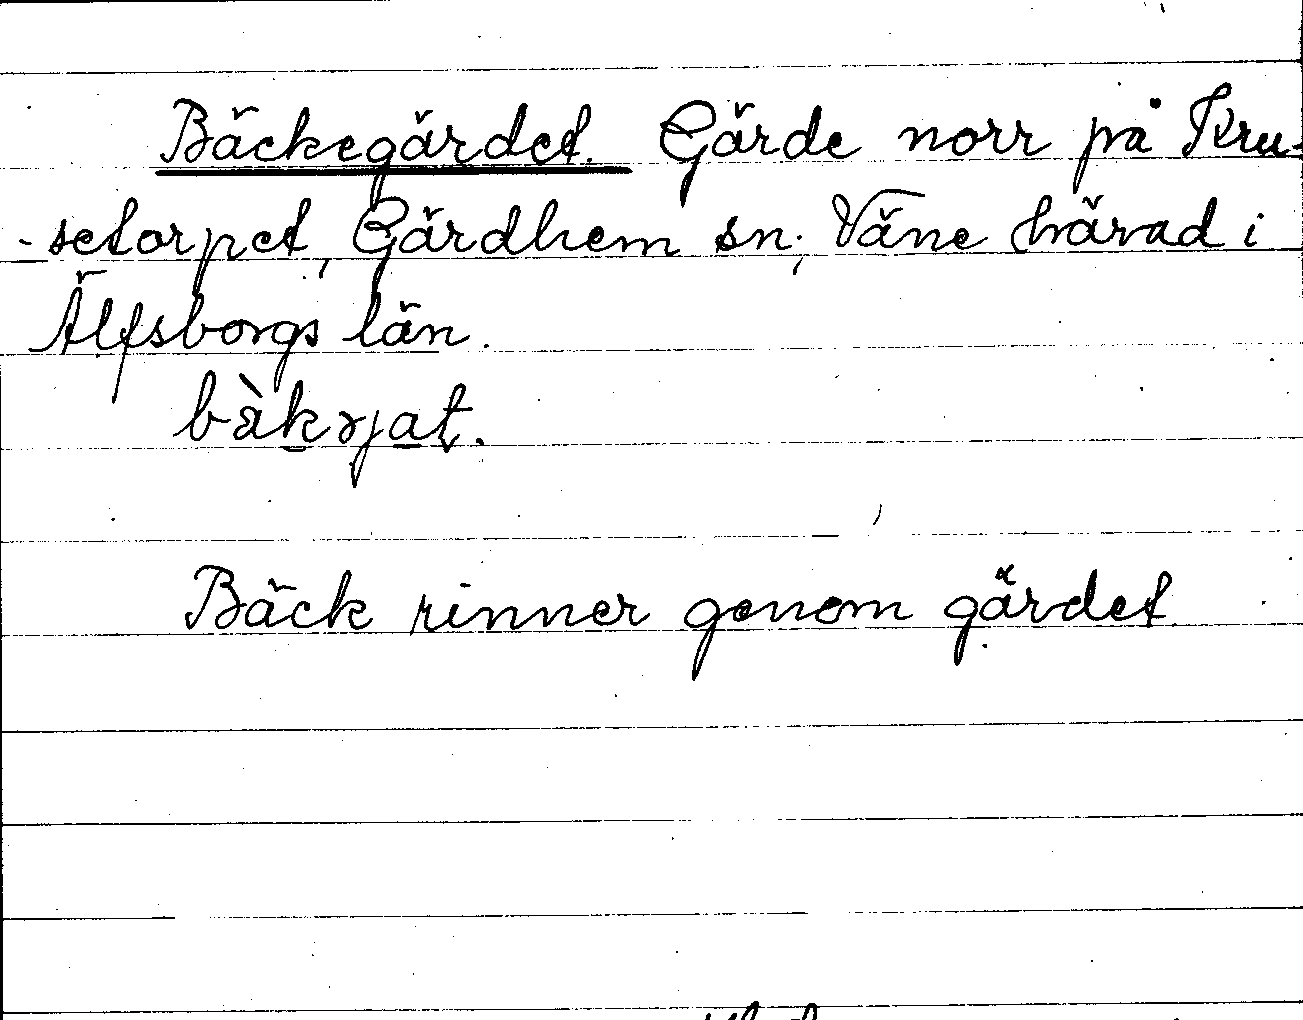 Bäckegärdet. Gärde norr på Kru-
-setorpet, Gärdhem sn; Väne härad i
Älfsborgs län.
Bäck rinner genom gärdet